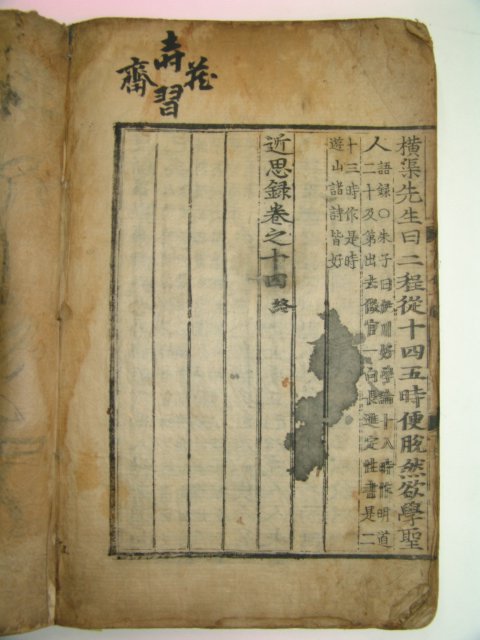 橫渠先生曰二程從十四五時便脫然欲學聖
人
語録○朱子曰伊川好學論十八時作明道
二十及第出去做官一向長進定性書是二
十三時作是時
遊山諸詩皆好
近思録卷之十四 終
習
齋
藏